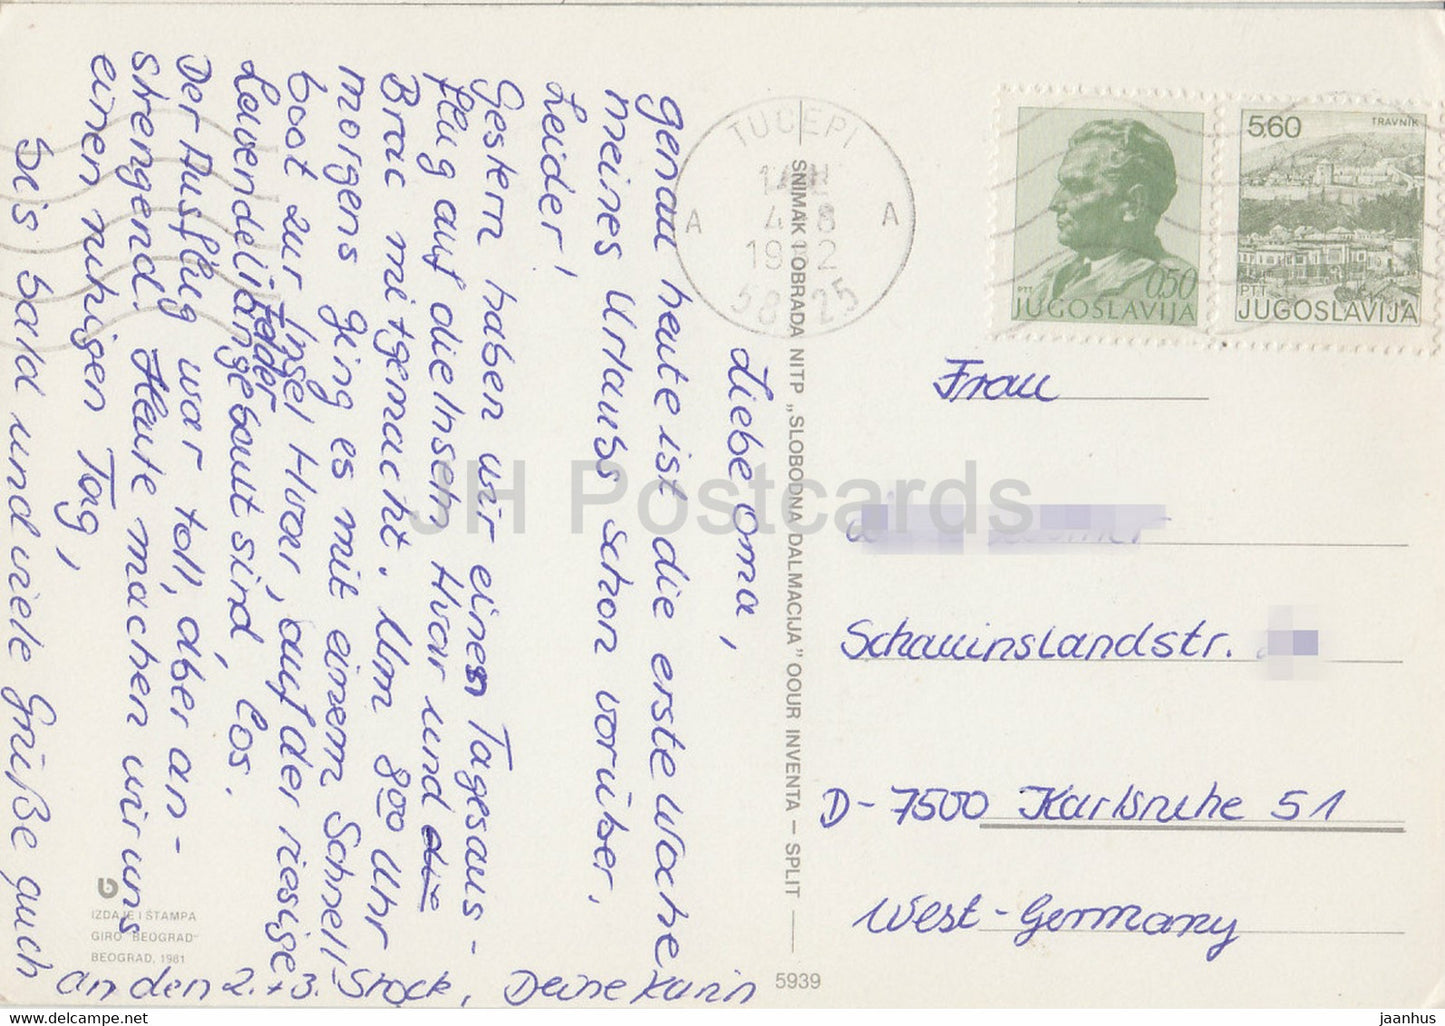 Liebe Oma,
genau heute ist die erste Woche
meines Urlaubs schon vorüber.
Leider!
Gestern haben wir einen Tagesaus-
flug auf die Inseln Hvar und die
Brac mitgemacht. Um 800 Uhr
morgens ging es mit einem Schnell
boot zur Insel Hvar, auf der riesige
Lavendel Felder angebaut sind, los.
Der Ausflug war toll, aber an-
strengend. Heute machen wir uns
einen ruhigen Tag,
bis bald und viele Grüße auch
an den 2. + 3. Stock, Deine Karin
TUCEPI
14H
4 8
19 2
A A
58325
SNIMAK I OBRADA NITP „SLOBODNA DALMACIJA" OOUR INVENTA — SPLIT
0,50
PTT
JUGOSLAVIJA
5,60
TRAVNIK
PTT
JUGOSLAVIJA
Frau
Schauinslandstr.
D-7500 Karlsruhe 51
West-Germany
IZDAJE I ŠTAMPA
GIRO "BEOGRAD"
BEOGRAD, 1981
5939
JH Postcards
www.delcampe.net
jaanhus